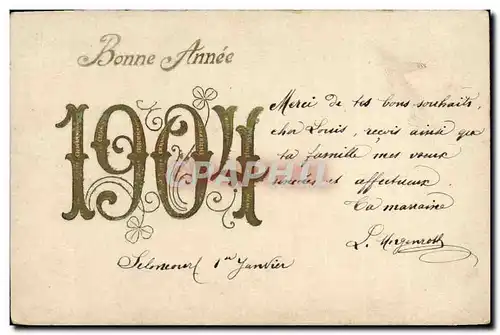 Bonne Année
1904
Merci de tes bons souhaits,
cher Louis, reçois ainsi que
ta famille mes vœux
sincères et affectueux.
Ta marraine
L. Morgenroth
Seloncourt 1er Janvier